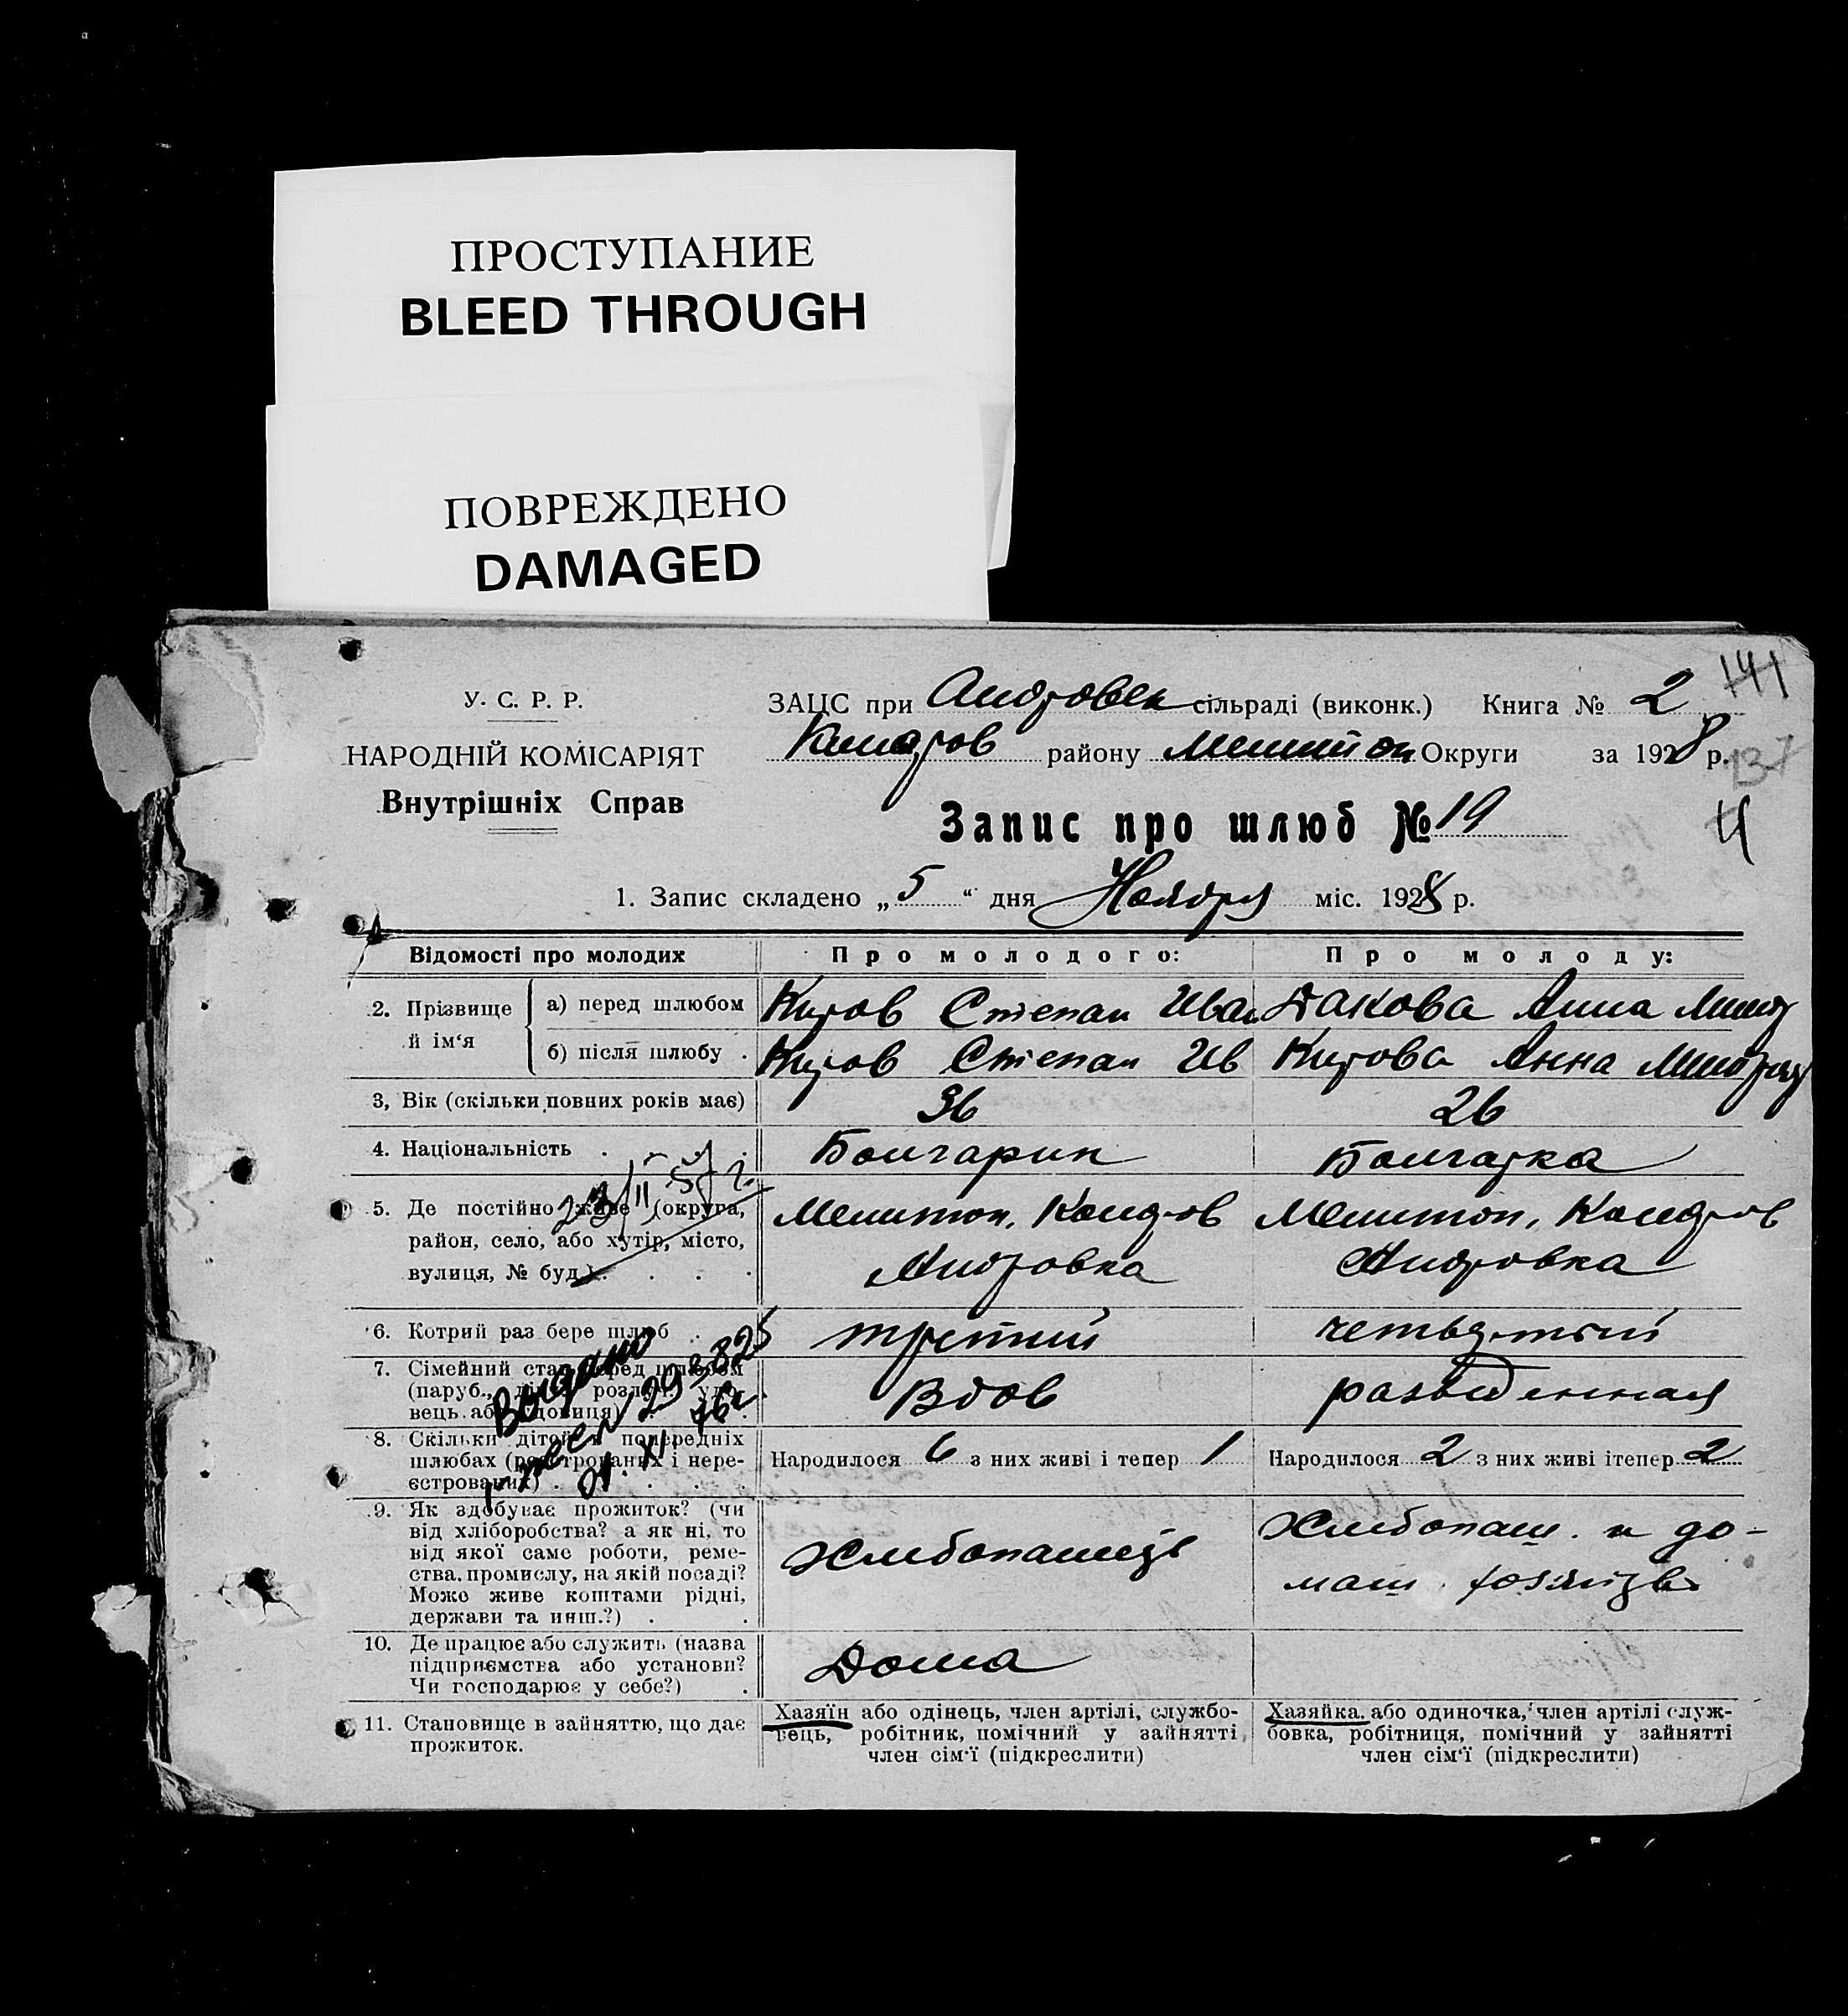 ПРОСТУПАНИЕ
BLEED THROUGH
ПОВРЕЖДЕНО
DAMAGED
141
У. С. Р. Р.
НАРОДНІЙ КОМІСАРІЯТ
Внутрішніх Справ
ЗАЦС при Андровск сільраді (виконк.) Книга № 2
району Мелитоп Округи за 1928 р.
137
Запис про шлюб № 19
4
1. Запис складено „ 5 “ дня Ноября міс. 1928 р.
Відомості про молодих
Про молодого:
Про молоду:
2. Прізвище й ім‘я
а) перед шлюбом
Киров Степан Иван
Дакова Анна
б) після шлюбу .
Киров Степан Ив
Кирова Анна
3, Вік (скільки повних років має)
36
26
4. Національність . . .
Болгарин
Болгарка
23/II 57 г.
5. Де постійно живе (округа,
район, село, або хутір, місто,
вулиця, № буд.) . . . .
Мелитоп, Коларов
Андровка
Мелитоп, Коларов
Андровка
6. Котрий раз бере шлюб . .
третий
четвертый
7. Сімейний стан перед шлюбом
(паруб., дівка, розлуч., удо-
вець або удовиця) . . .
Вдов
разведенная
8. Скільки дітей в попередніх
шлюбах (реєстрованих і нере-
єстрованих) . . . . .
Народилося 6 з них живі і тепер 1
Народилося 2 з них живі і тепер 2
9. Як здобуває прожиток? (чи
від хліборобства? а як ні, то
від якої саме роботи, реме-
ства, промислу, на якій посаді?
Може живе коштами рідні,
держави та инш.?) . .
Хлебопашец
Хлебопаш. и до-
маш. хозяйзв
10. Де працює або служить (назва
підприємства або установи?
Чи господарює у себе?) .
Дома
11. Становище в зайняттю, що дає
прожиток.
Хазяїн або одінець, член артілі, службо-
вець, робітник, помічний у зайнятті
член сім‘ї (підкреслити)
Хазяйка. або одиночка, член артілі служ-
бовка, робітниця, помічний у зайнятті
член сім‘ї (підкреслити)